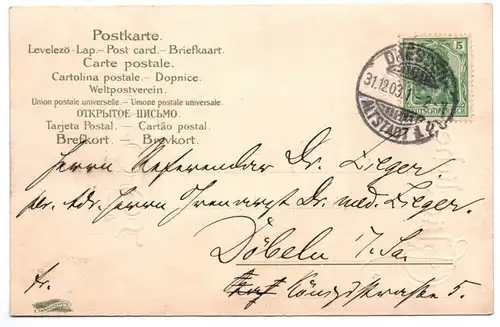 Postkarte.
Levelezö-Lap.— Post card.— Briefkaart.
Carte postale.
Cartolina postale.- Dopnice.
Weltpostverein.
Union postale universelle.— Unione postale universale.
ОТКРЫТОЕ ПИСЬМО
Tarjeta Postal.— Cartão postal.
Brefkort.— Brevkort.
5
DRESDEN
31.12.03.
ALTSTADT 1
DEUTSCHES REICH
Herrn Referendar Dr. Zieger.
per. Adr. Herrn Irrenarzt Dr. med. Zieger.
Döbeln i/Sa.
fr.
Königstrasse 5.